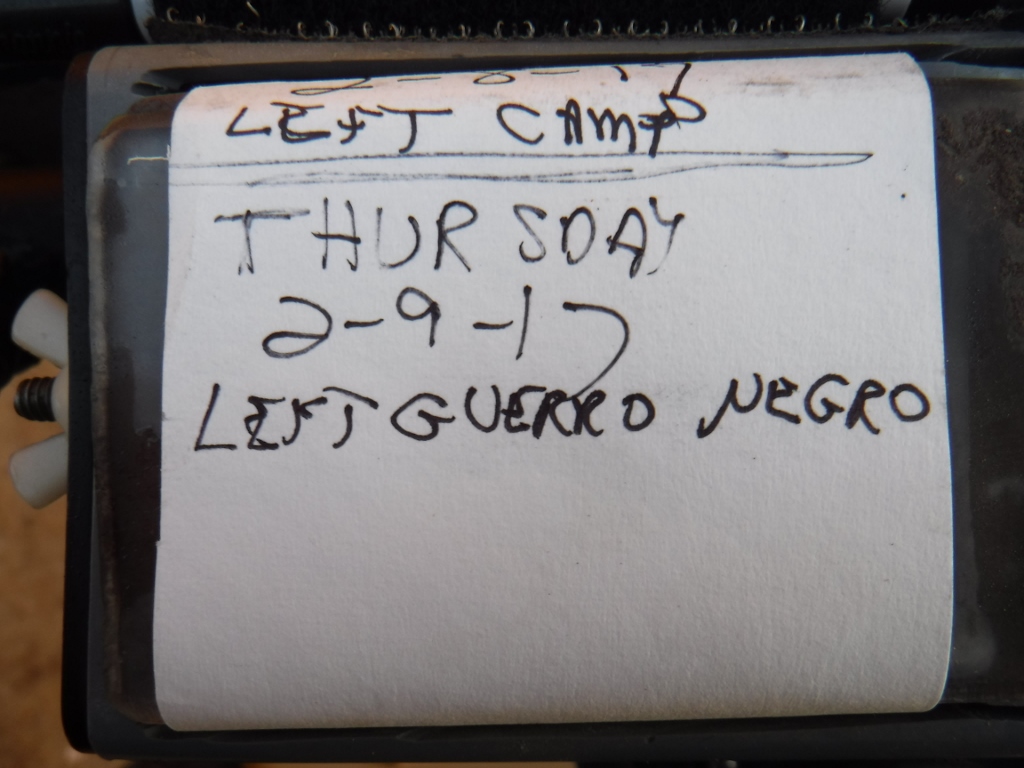 2-8-17
LEFT CAMP
THURSDAY
2-9-17
LEFT GUERRO NEGRO